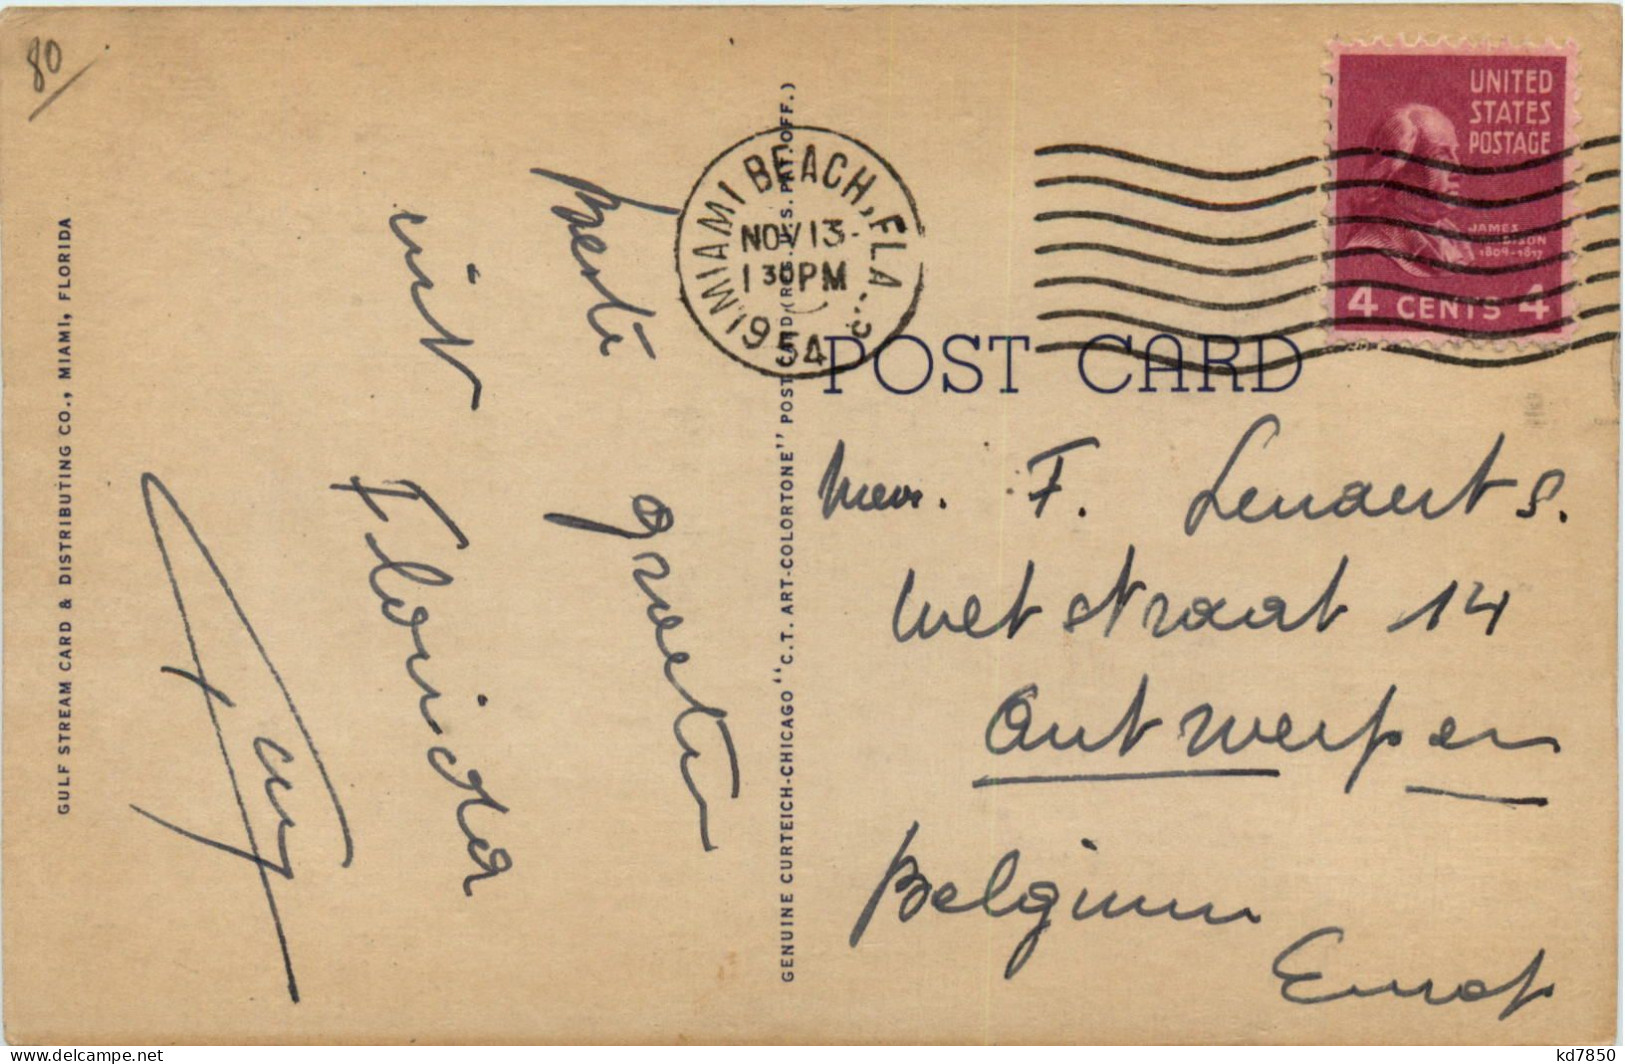 80
GULF STREAM CARD & DISTRIBUTING CO., MIAMI, FLORIDA
Beste groeten
uit Florida
GENUINE CURTEICH-CHICAGO "C.T. ART-COLORTONE" POST CARD (REG. U.S. PAT. OFF.)
MIAMI BEACH, FLA.
NOV 13
1 30 PM
1954
UNITED
STATES
POSTAGE
JAMES
MADISON
1809-1817
4 CENTS 4
POST CARD
Mevr. F. Lenaerts.
Wetstraat 14
Antwerpen
Belgium
Europ
kd7850